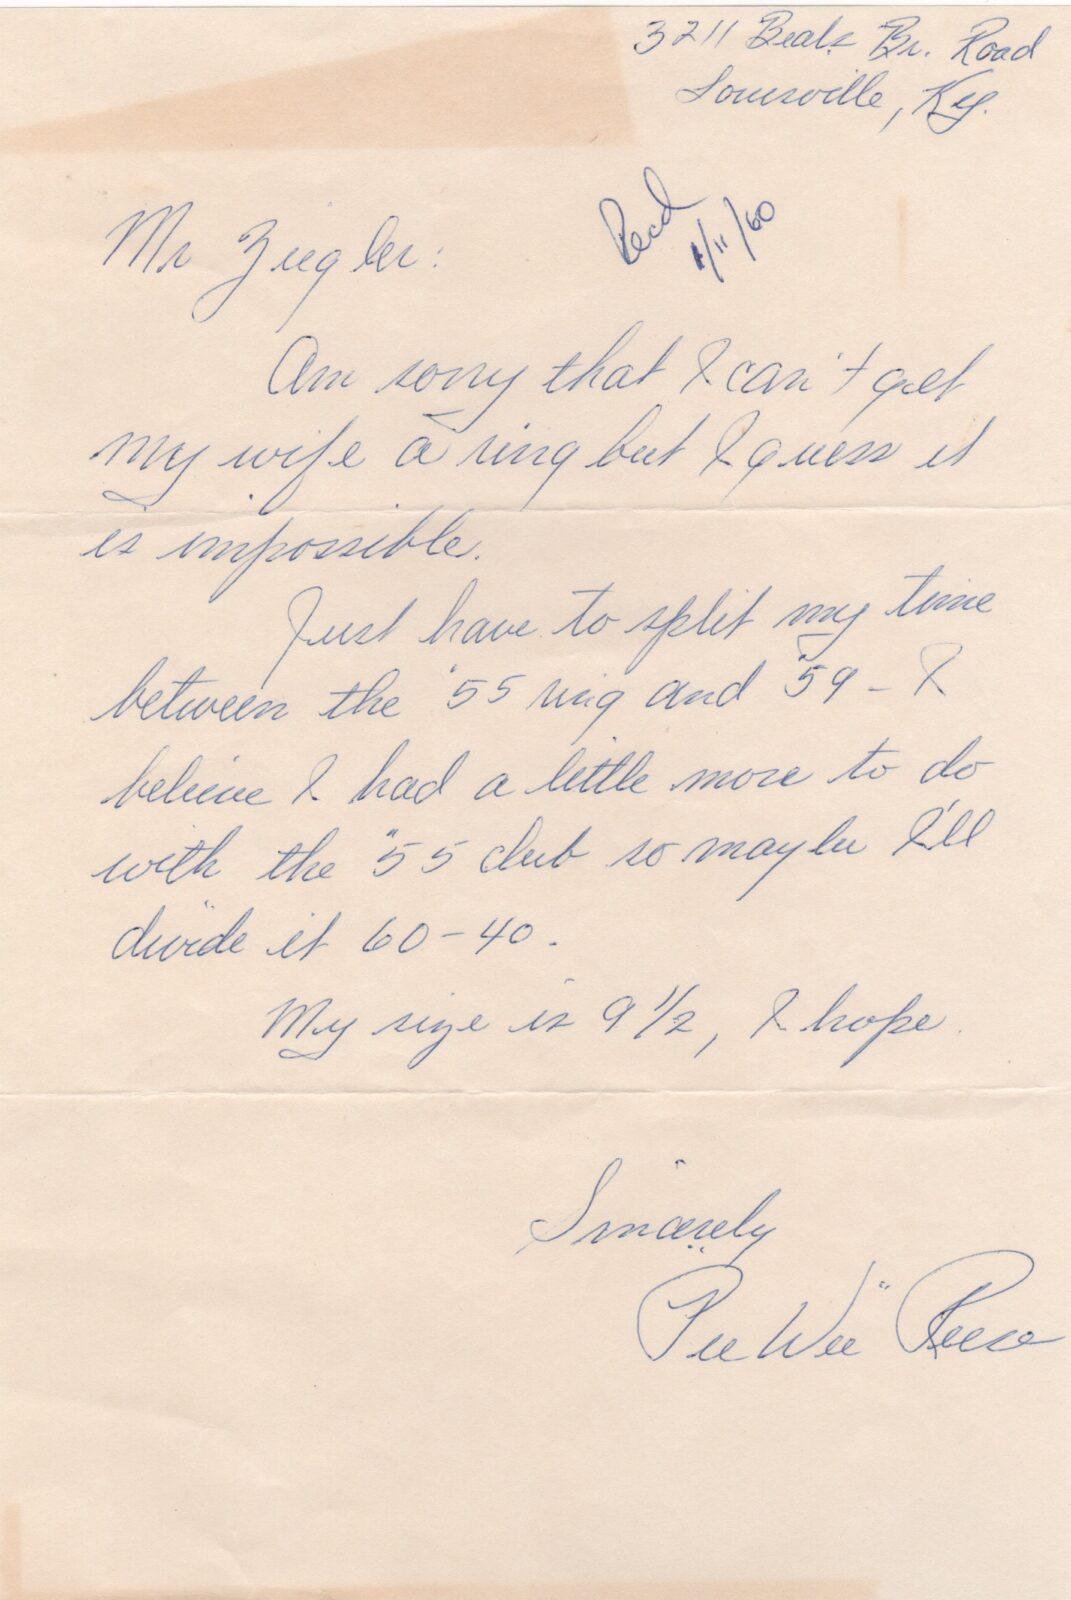 3211 Beals Br. Road
Louisville, Ky.
Recd
1/11/60
Mr Ziegler:
Am sorry that I can't get
my wife a ring but I guess it
is impossible.
Just have to split my time
between the '55 ring and '59 - I
believe I had a little more to do
with the "55 club so maybe I'll
divide it 60-40.
My size is 9 1/2, I hope.
Sincerely
"Pee Wee" Reese